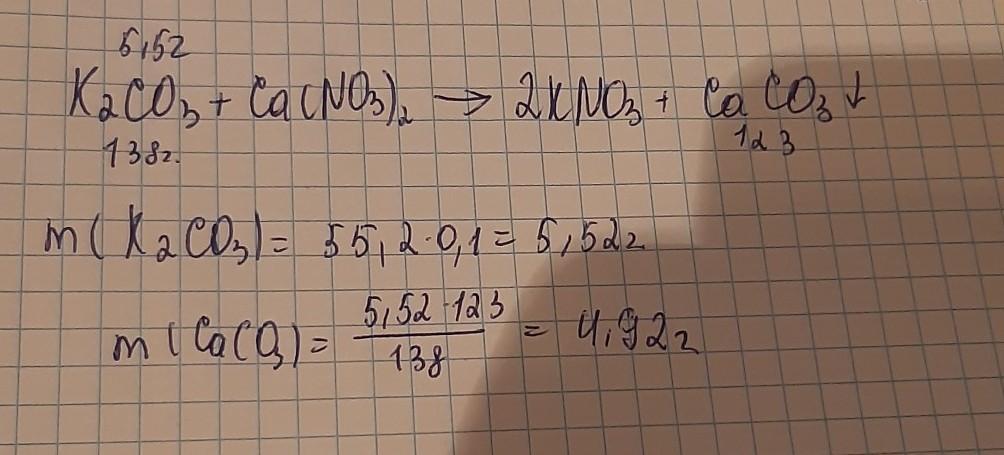 5,52
K₂CO₃ + Ca(NO₃)₂ → 2KNO₃ + CaCO₃↓
138г. 123
m(K₂CO₃) = 55,2·0,1 = 5,52г
m(CaCO₃) = 5,52·123/138 = 4,92г